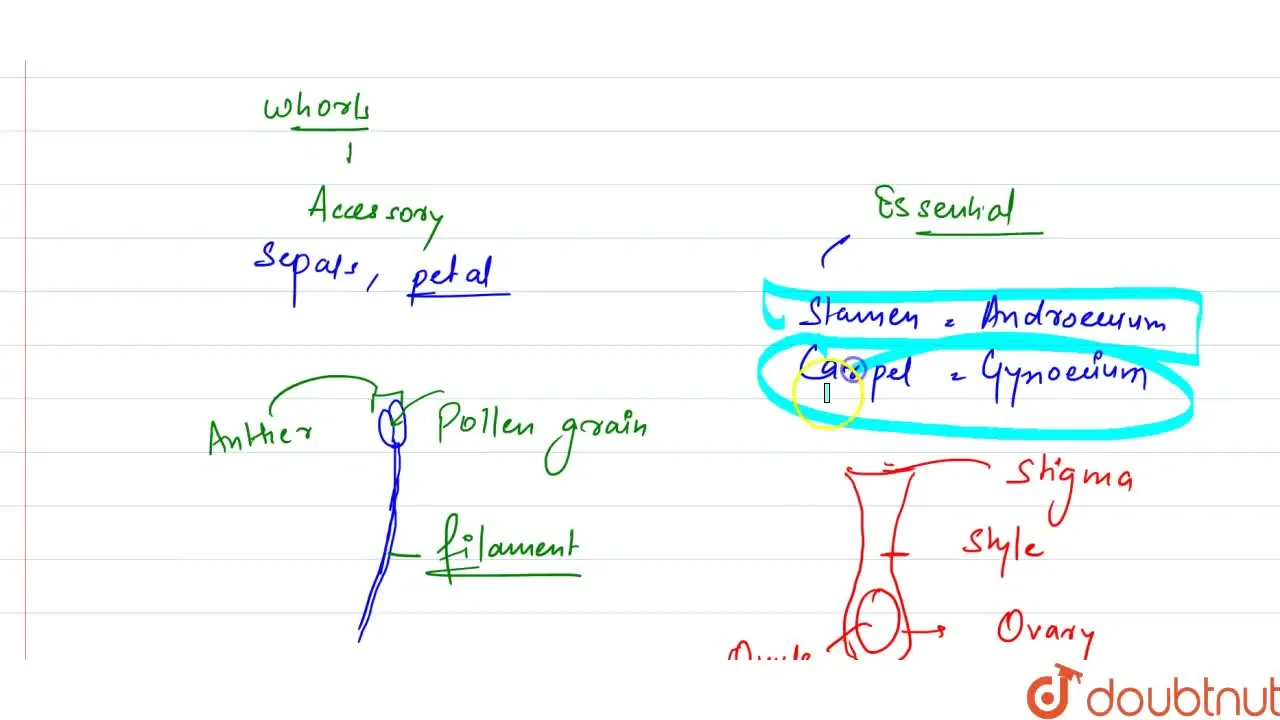 Whorls
Accessory
Sepals, petal
Essential
Stamen = Androecium
Carpel = Gynoecium
Anther
Pollen grain
filament
Stigma
Style
Ovary
Ovule
doubtnut